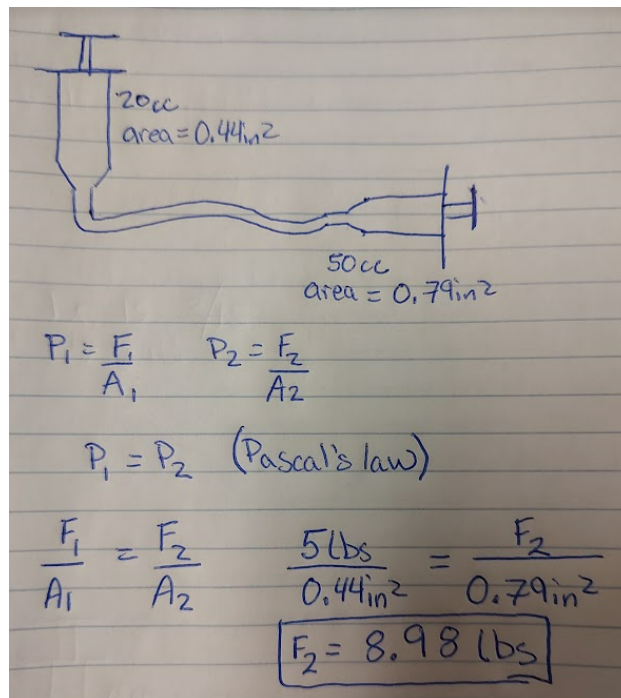 20cc
area = 0.44in²
50cc
area = 0.79in²
P₁ = F₁/A₁    P₂ = F₂/A₂
P₁ = P₂  (Pascal's law)
F₁/A₁ = F₂/A₂    5lbs/0.44in² = F₂/0.79in²
F₂ = 8.98 lbs